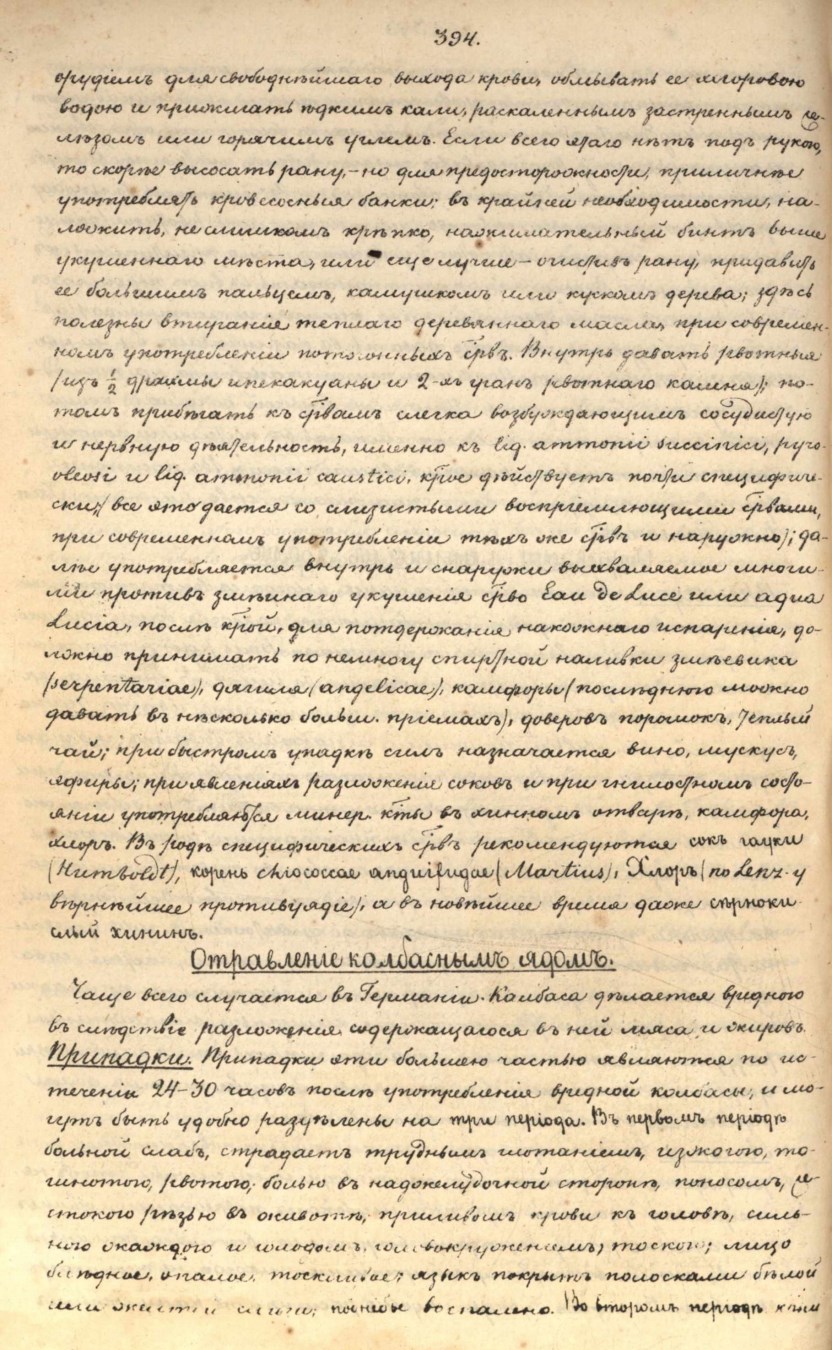 394.
орудіемъ для свободнѣйшаго выхода крови, обмывать ее хлоровою
водою и прижигать ѣдкимъ кали, раскаленнымъ застреннымъ же-
лѣзомъ или горячимъ углемъ. Если всего этаго нѣтъ подъ рукою,
то скорѣе высосать рану, – но для предосторожности, приличнѣе
употреблять кровсосныя банки; въ крайней необходимости, на-
ложить, не слишкомъ крѣпко, нажимательный бинтъ выше
укушеннаго мѣста, или еще лучше – очистивъ рану, придавить
ее большимъ пальцемъ, камушкомъ или кускомъ дерева; здѣсь
полезны втиранія теплаго деревяннаго масла, при современ-
номъ употребленіи потогонныхъ срвъ. Внутрь давать рвотныя
(изъ ½ драхмы ипекакуаны и 2-хъ гранъ рвотнаго камня); по-
томъ прибѣгать къ срвамъ слегка возбуждающимъ сосудистую
и нервную дѣятельность, именно къ liq. ammonii succinici, pyro-
oleosi и liq. ammonii caustici, кѣое дѣйствуетъ почти специфиче-
ски; (все это дается со слизистыми воспріемлющими срвами,
при современномъ употребленіи тѣхъ же срвъ и наружно); да-
лѣе употребляется внутрь и снаружи выхваляемое многи-
ми противъ змѣинаго укушенія срво Eau de Luce или aqua
Luciae, послѣ кѣой, для потдержанія накожнаго испаренія, до-
лжно принимать по немногу спиртной наливки змѣевика
(serpentariae), дягиля (angelicae), камфоры (послѣднюю можно
давать въ нѣсколько больш. пріемахъ), доверовъ порошокъ, теплый
чай; при быстромъ упадкѣ силъ назначается вино, мускусъ,
эфиры; при явленіяхъ разложенія соковъ и при гнилостномъ состо-
яніи употребляются минер. кты въ хинномъ отварѣ, камфора,
хлоръ. Въ родѣ специфическихъ срвъ рекомендуются сокъ гауки
(Humboldt), корень chiococcae anguifugae (Martius), Хлоръ (по Lenz-у
вѣрнѣйшее противуядіе), а въ новѣйшее время даже сѣрноки-
слый хининъ.
Отравленіе колбаснымъ ядомъ.
Чаще всего случается въ Германіи. Колбаса дѣлается вредною
въ слѣдствіе разложенія содержащагося въ ней мяса и жировъ.
Припадки. Припадки эти большею частью являются по ис-
теченіи 24–30 часовъ послѣ употребленія вредной колбасы, и мо-
гутъ быть удобно раздѣлены на три періода. Въ первомъ періодѣ
больной слабъ, страдаетъ труднымъ глотаніемъ, изжогою, то-
шнотою, рвотою, болью въ наджелудочной сторонѣ, поносомъ, же-
стокою рѣзью въ животѣ, приливомъ крови къ головѣ, силь-
ною жаждою и голодомъ, головокруженіемъ, тоскою; лицо
блѣдное, опалое, тоскливое; языкъ покрытъ полосками бѣлой
или желтой слизи; поднебье воспалено. Во второмъ періодѣ